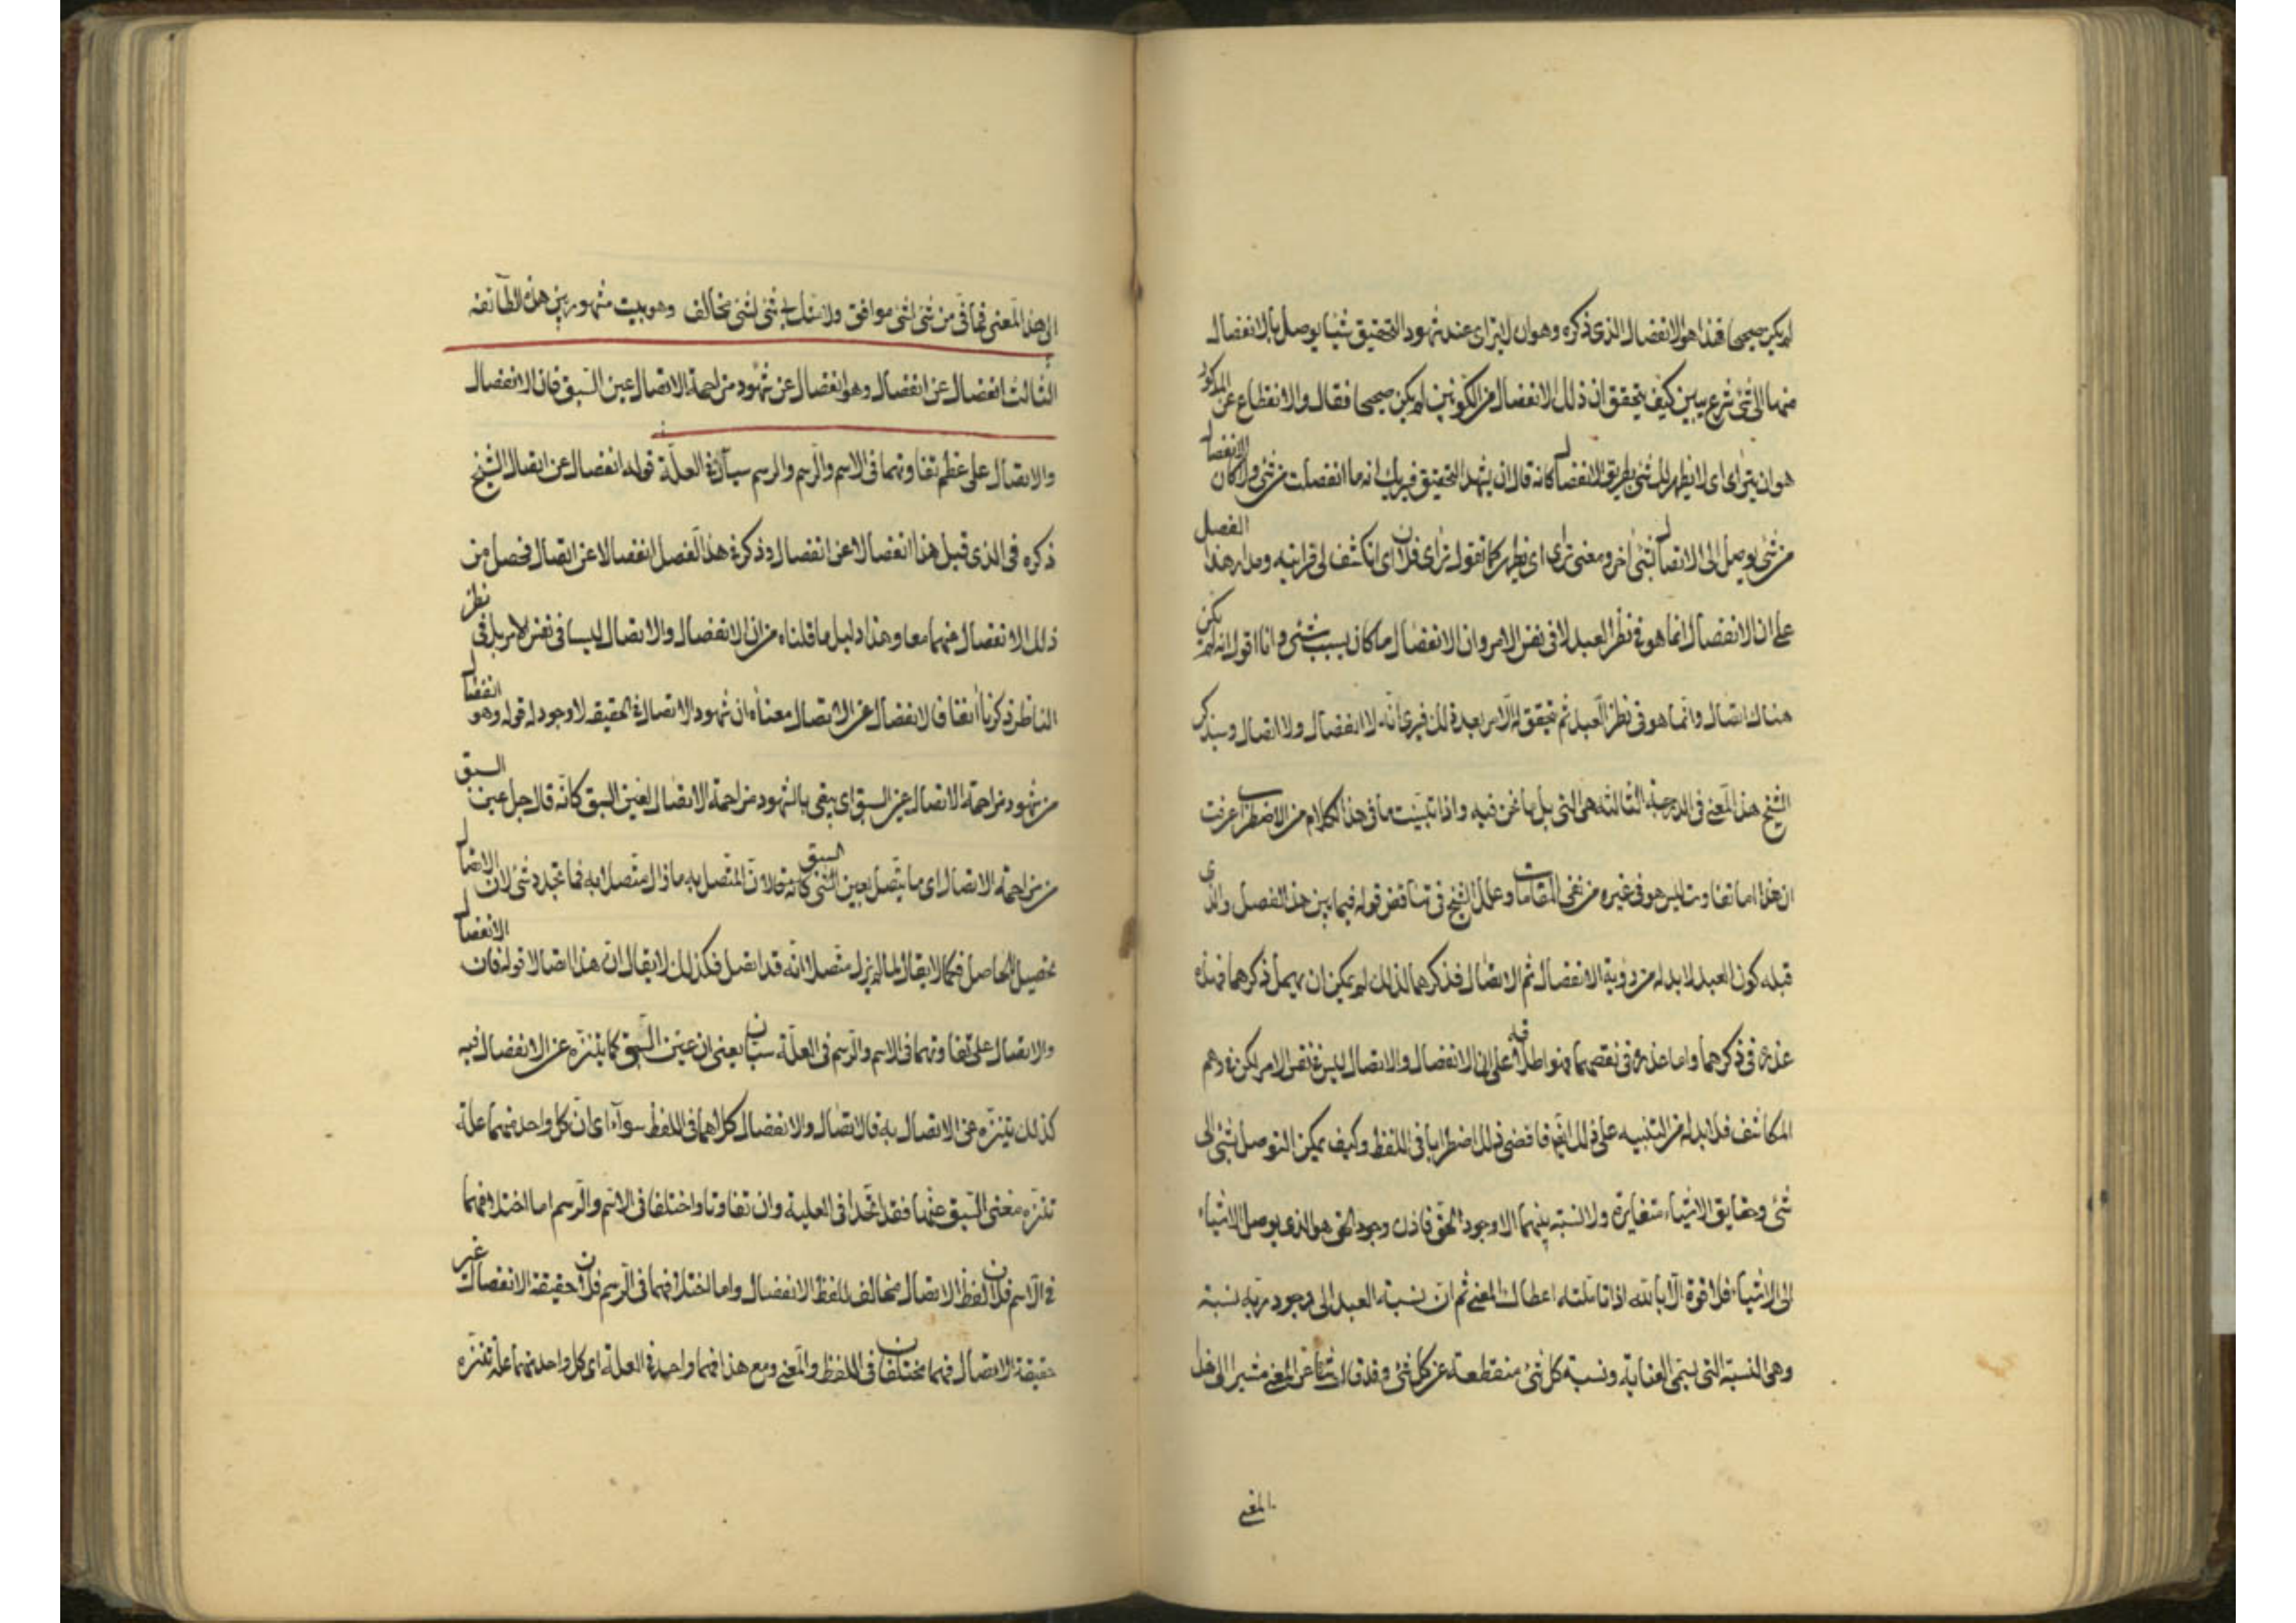 لم يكن صحيحا فهذا هو الانفصال الذي ذكره وهو ان لا يتراى عند شهود التحقيق شيئا يوصل بالانفصال
منهما الى شئ شرع يبين كيف يتحقق ان ذلك الانفصال من الكونين لم يكن صحيحا فقال والانقطاع عن المذكور
هو ان يتراى اى لا يظهر لك شئ بطريق الانفصال كانه قال ان يشهد التحقيق فيريك انه ما انفصلت من شئ ولا كان الانفصال
من شئ يوصل الى الاتصال بشئ اخر ومعنى تراى اى يظهر كما تقول تراى فلان اى انكشف لى قرابته ومدار هذا الفصل
على ان الانفصال انما هو فى نظر العبد لا فى نفس الامر وان الانفصال ما كان بسبب شئ وانا اقول انه لم يكن
هناك اتصال وانما هو فى نظر العبد ثم تحقق له الامر بعد ذلك فيرى انه لا انفصال ولا اتصال وسيذكر
الشيخ هذا المعنى فى الدرجة الثالثة هى التى يلى ما نحن فيه واذا تبينت ما فى هذا الكلام من الاضطراب عرفت
ان هذا اما تفاوت ليس هو فى غيره من المقامات وعلل الشيخ فى تناقض قوله فيما بين هذا الفصل والذى
قبله كون العبد لا بد له من رؤية الانفصال ثم الاتصال فذكرهما لذلك لم يمكن ان يهمل ذكرهما فهذه
عذره فى ذكرهما واما عذره فى نقصهما فهو اطلاقه على ان الانفصال والاتصال ليس فى نفس الامر لكن فى وهم
المكاشف فلا بد له من التنبيه على ذلك فاقضى ذلك اضطرابا فى اللفظ وكيف يمكن التوصل بشئ الى
شئ وحقايق الاشياء متغايرة ولا نسبة بينهما الا وجود الحق فاذن وجود الحق هو الذى يوصل الاشياء
الى الاشياء فلا قوة الا بالله اذا تاملته اعطاك المعنى ثم ان نسبة العبد الى وجود ربه نسبة
وهى النسبة التى تسمى العناية ونسبة كل شئ منقطعة عن كل شئ وقد قال مشيرا الى هذا
المعنى
الى هذا المعنى فما فى من شئ لشئ موافق ولا منك لى شئ لشئ مخالف وهو بيت مشهور بين هذه الطائفة
الثالث انفصال عن انفصال وهو انفصال عن شهود مزاحمة الاتصال عين السبق فان الانفصال
والاتصال على عظم تفاوتهما فى الاسم والرسم والرسم سيان فى العلة قوله انفصال عن اتصال الشيخ
ذكره فى الذى قبل هذا انفصالا عن انفصال وذكر فى هذا الفصل انفصالا عن اتصال فحصل من
ذلك الانفصال منهما معا وهذا دليل ما قلناه من ان الانفصال والاتصال ليسا فى نفس الامر بل فى نظر
الناظر ذكرنا انفا فالانفصال عن الاتصال معناه ان شهود الاتصال فى الحقيقة لا وجود له قوله وهو انفصال
من شهود مزاحمة الاتصال عين السبق اى يبقى بالشهود مزاحمة الاتصال لعين السبق كانه قال جل عين السبق
من مزاحمة الاتصال اى ما يتصل بعين السبق كانه قال ان المتصل به ما زال متصلا به فما تجدد شئ لان الاتصال
تحصيل الحاصل فكما لا يقال لما لم يزل متصلا انه قد اتصل فكذلك لا يقال ان هذا اتصالا قوله فان الانفصال
والاتصال على تفاوتهما فى الاسم والرسم فى العلة سيان يعنى ان عين السبق كما يتنزه عن الانفصال فيه
كذلك يتنزه عن الاتصال به فالاتصال والانفصال كلاهما فى اللفظ سواء اى ان كل واحد منهما علة
تنزه معنى السبق عنهما فقد اتحدا فى العلية وان تفاوتا واختلفا فى الاسم والرسم اما اختلافهما
فى الاسم فلان لفظ الاتصال مخالف للفظ الانفصال واما اختلافهما فى الرسم فلان حقيقة الانفصال غير
حقيقة الاتصال فهما مختلفان فى اللفظ والمعنى ومع هذا فهما واحد فى العلة اى كل واحد منهما علة تنزه